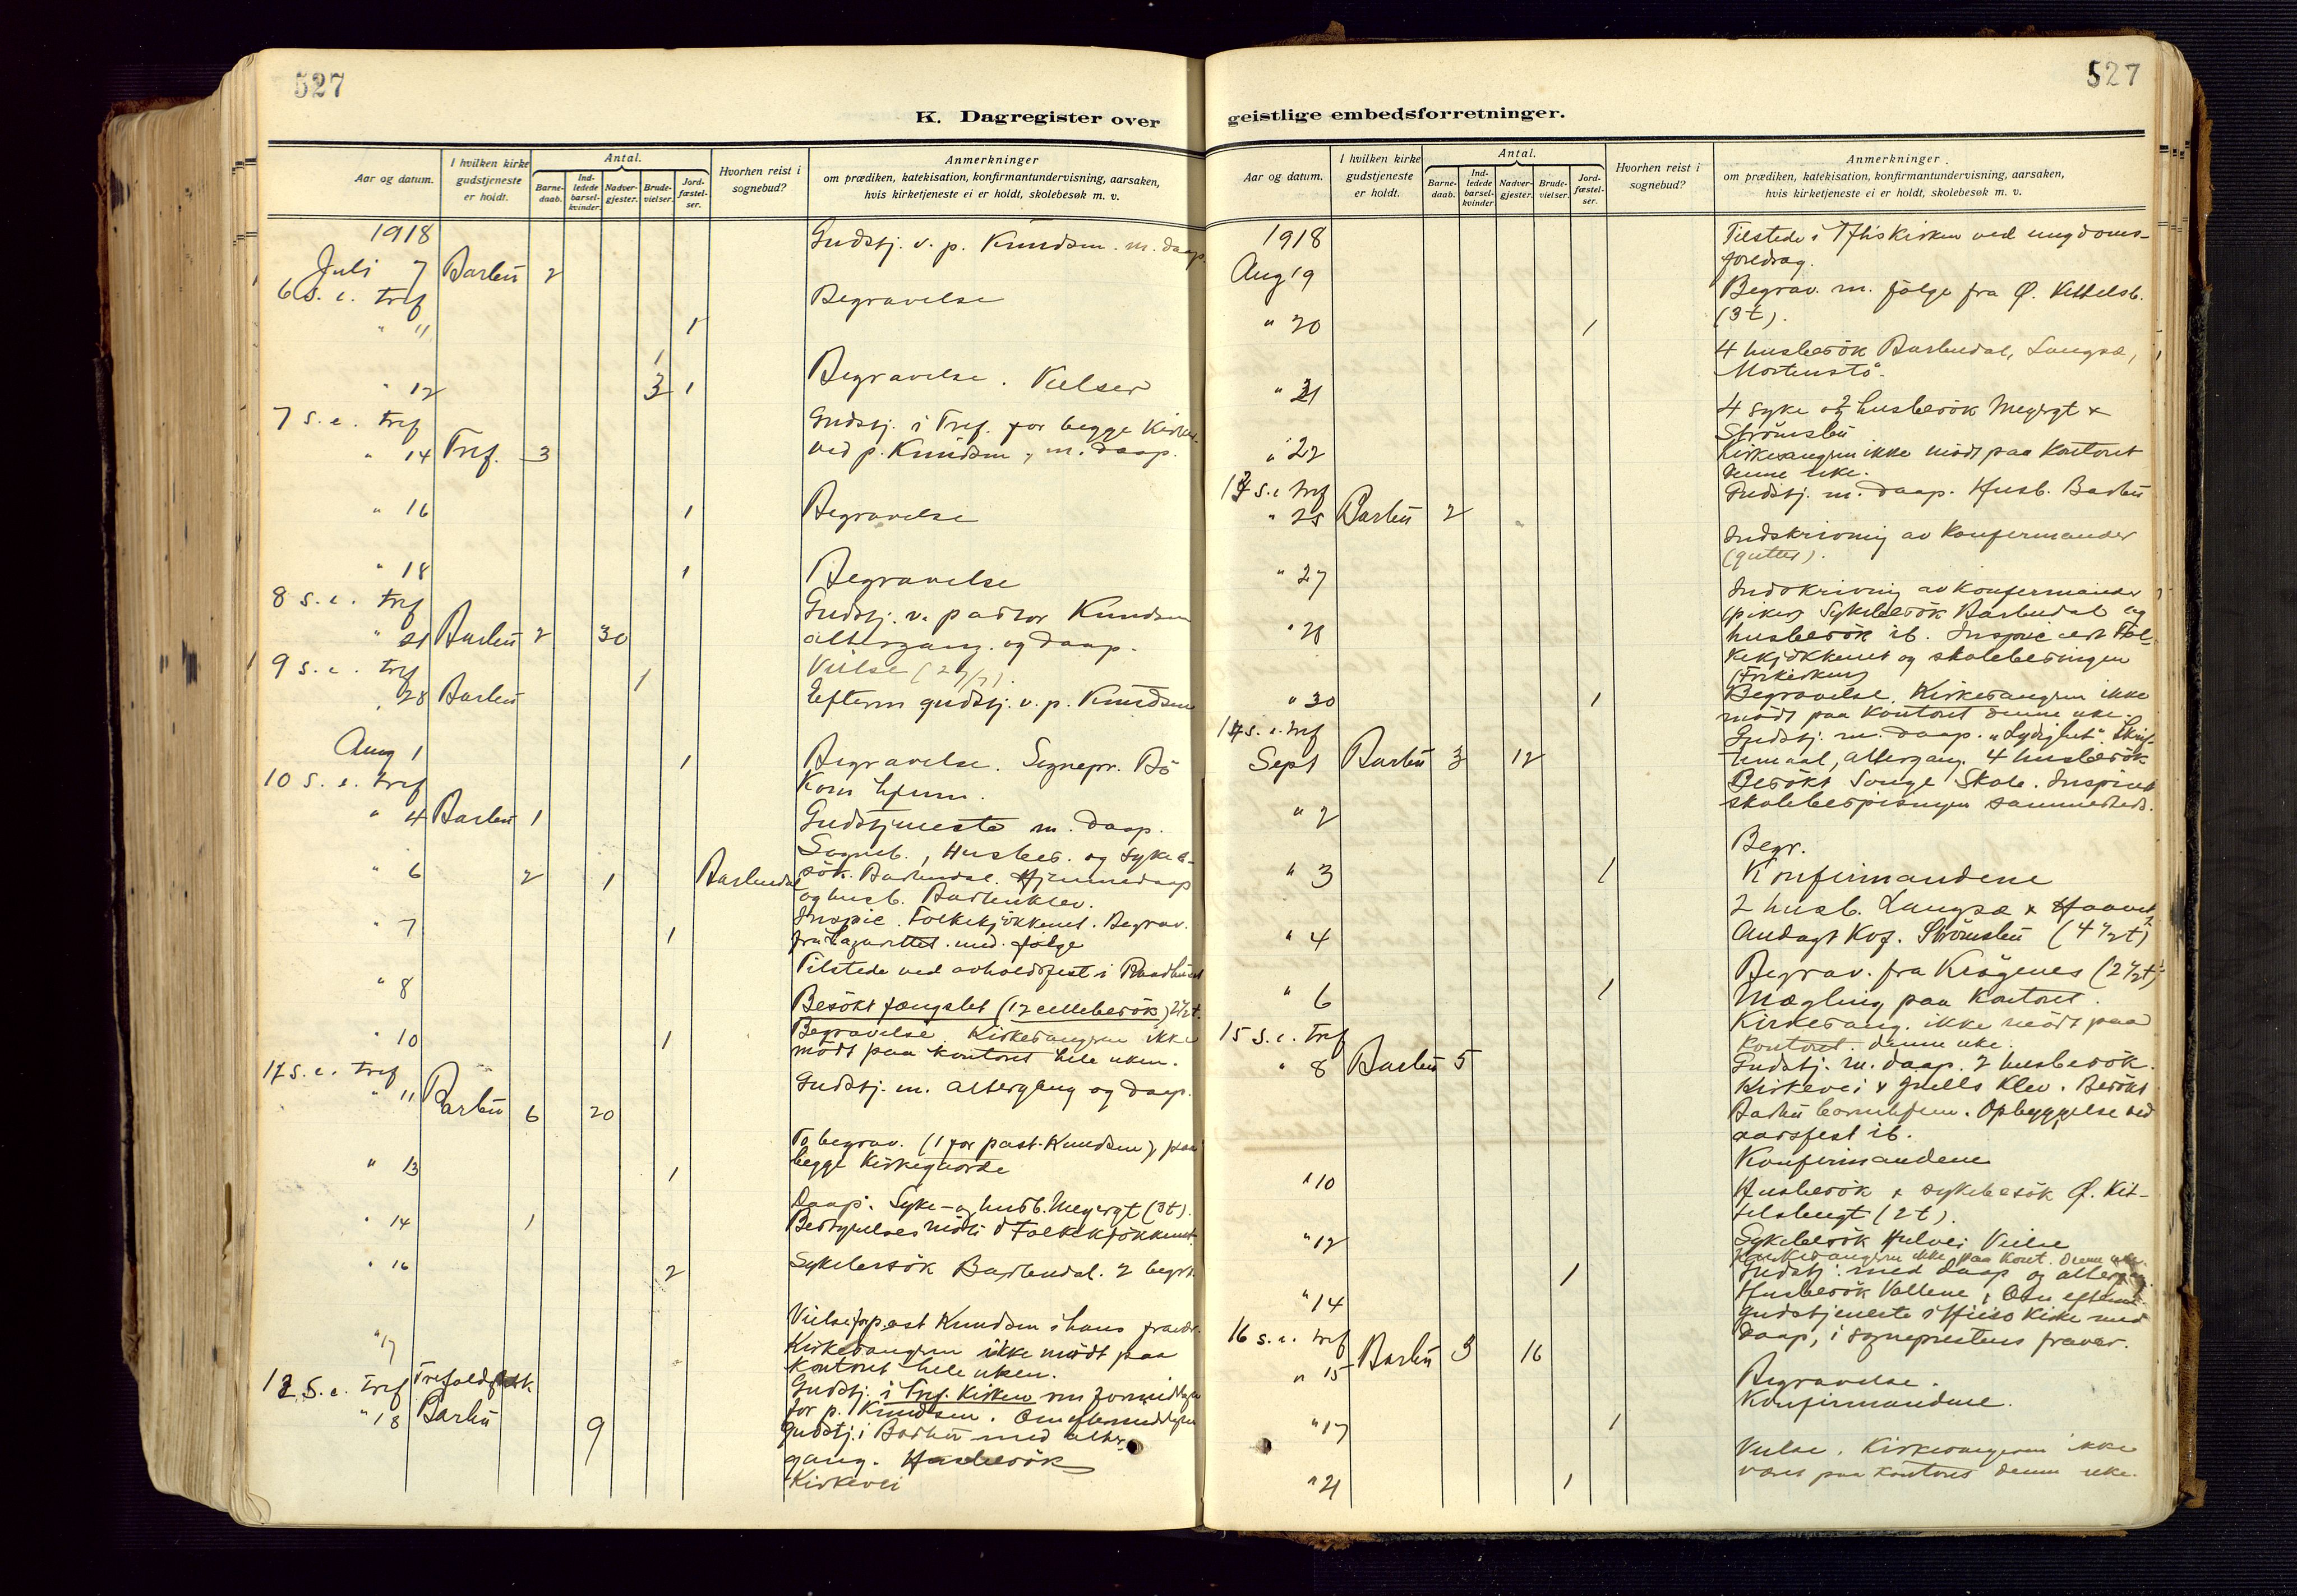 527
K. Dagregister over
Aar og datum.
I hvilken kirke gudstjeneste er holdt.
Antal.
Barnedaab.
Indledede barselkvinder.
Nadvergjester.
Brudevielser.
Jordfæstelser.
Hvorhen reist i sognebud?
Anmerkninger
om prædiken, katekisation, konfirmantundervisning, aarsaken,
hvis kirketjeneste ei er holdt, skolebesøk m. v.
1918
Gudstj. v. p. Knudsen. m. daap.
Juli 7 Barbu 2
6 S. e. tref
" 11 1 Begravelse
1
" 12 3 1 Begravelse. Vielser
7 S. e. tref
Gudstj. i Tref. for begge Kirker
" 14 Tref. 3 ved p. Knudsen, m. daap.
" 16 1 Begravelse
" 18 1 Begravelse
8 S. e. tref
Gudstj. v. pastor Knudsen
" 21 Barbu 2 30 altergang. og daap.
9 S. e. tref
1 Vielse (27/7).
" 28 Barbu Efterm gudstj. v. p. Knudsen
Aug 1 1 Begravelse. Sognepr. Bö
Kom hjem.
10 S. e. tref
" 4 Barbu 1 Gudstjeneste m. daap.
Sogneb., Husbes. og sykebe-
" 6 2 1 Barbudal sök. Barbudal. Hjemmedaap
og husb. Barbuklev.
" 7 1 Inspic. Folkekjökkenet. Begrav.
fra Lazarettet med følge
" 8 Tilstede ved avholdsfest i Raadhuset
Besökt fængslet (12 cellebesök) 2½t.
" 10 1 Begravelse. Kirkesangeren ikke
mödt paa kontoret hele uken.
11 S. e. tref
" 11 Barbu 6 20 Gudstj. m. altergang og daap.
" 13 1 To begrav. (1 for past. Knudsen), paa
begge Kirkegaarde
" 14 1 Daap. Syke- og husb. Myrgt (3t).
Bestyrelsesmöte i Folkekjökkenet.
" 16 2 Sykebesök Barbudal. 2 begr.
" 17 Vielse for past Knudsen i hans fravær.
Kirkesangeren ikke mödt paa
Kontoret hele uken.
12 S. e. tref
Gudstj. i Tref. Kirken om formiddagen
" 18 Barbu 9 for p. Knudsen. Om eftermiddagen
gudstj. i Barbu med alter-
gang. Husbesök
Kirkevei
527
geistlige embedsforretninger.
Aar og datum.
I hvilken kirke gudstjeneste er holdt.
Antal.
Barnedaab.
Indledede barselkvinder
Nadvergjester.
Brudevielser.
Jordfæstelser.
Hvorhen reist i sognebud?
Anmerkninger.
om prædiken, katekisation, konfirmantundervisning, aarsaken,
hvis kirketjeneste ei er holdt, skolebesøk m. v.
1918
Aug 19 Tilstede i Kirken ved ungdoms-
foredrag.
" 20 1 Begrav. m. følge fra Ø. Kittelsb.
(3t).
" 21 4 husbesök Barbudal, Langsæ,
" 22 4 syke og husbesök Myrgt &
Strömsbu
Kirkesangeren ikke mödt paa Kontoret
denne uke.
13 S. e. tref
" 25 Barbu 2 Gudstj. m. daap. Husb. Barbu
" 27 Indskrivning av Konfirmander
(gutter).
" 28 Indskrivning av Konfirmander
(piker) Sykebesök Barbudal og
husbesök ib. Inspicert Fol-
kekjökkenet og skolebespisningen
" 30 1 Begravelse. Kirkesangeren ikke
mödt paa kontoret denne uke.
14 S. e. tref
Sept 1 Barbu 3 12 Gudstj. m. daap. "Lydighet" Skrif-
temaal, altergang. 4 husbesök
" 2 Besökt Songe Skole. Inspicert
skolebespisningen sammesteds.
" 3 1 Begr.
Konfirmandene
" 4 2 husb. Langsæ &
Andagt Kof. Strömsbu (4½t)
" 6 1 Begrav. fra Krögenes (2½t)
Mægling paa Kontoret.
Kirkesang. ikke mödt paa
Kontoret. denne uke.
15 S. e. tref
" 8 Barbu 5 Gudstj. m. daap. 2 husbesök.
Kirkevei & Grells Klev. Besökt
Barbu barnehjem. Opbyggelse ved
aarsfest ib.
" 10 Konfirmandene
" 12 Husbesök & sykebesök Ø. Kit-
telsbugt (2t).
" 14 1 Sykebesök Vielse
Kirkesangeren ikke paa Kont. denne uke.
16 S. e. tref
" 15 Barbu 3 16 Gudstj. med daap og altergang.
Husbesök Vollene, Om efterm.
gudstjeneste i Hisö Kirke med
daap, i sogneprestens fravær.
" 17 1 Begravelse.
Konfirmandene.
" 21 1 Vielse. Kirkesangeren ikke
været paa Kontoret denne uke.